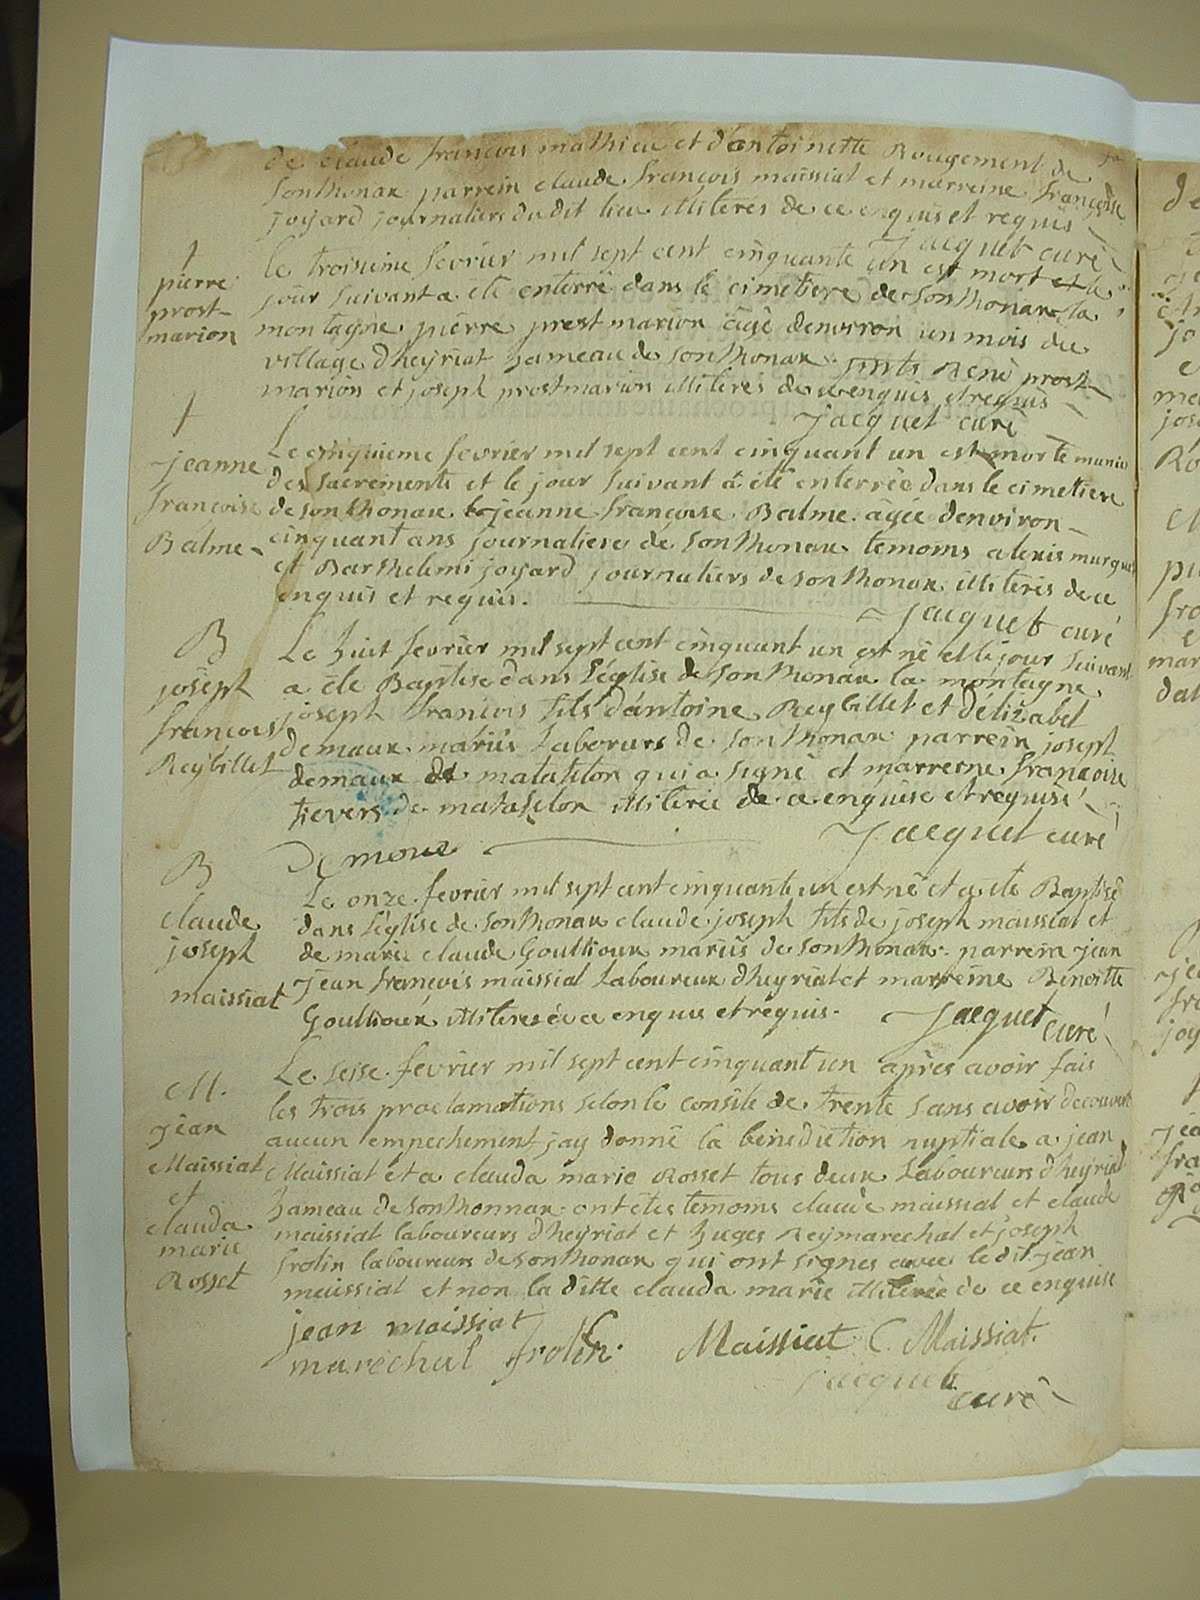 de claude françois mathieu et d'antoinette Rougement de
Sonthonax parrein claude françois maissiat et marreine françoise
joyard journaliers dudit lieu illiterés de ce enquis et requis
Jacquet curé
†
pierre
prost
marion
le troisieme fevrier mil sept cent cinquante un est mort et le
jour suivant a eté enterré dans le cimetiere de Sonthonax la
montagne pierre prost marion agé denviron un mois du
village dheyriat hameau de Sonthonax René prost
marion et joseph prost marion illiterés de ce enquis et requis
Jacquet curé
†
jeanne
françoise
Balme
Le cinquieme fevrier mil sept cent cinquant un est morte munie
des sacrements et le jour suivant a eté enterrée dans le cimetiere
de Sonthonax jeanne françoise Balme agée denviron
cinquant ans journaliere de Sonthonax temoins alexis
et Barthelemi joyard journaliers de Sonthonax illiterés de ce
enquis et requis.
Jacquet curé
B
joseph
françois
Reybillet
Le huit fevrier mil sept cent cinquant un est né et le jour suivant
a été Baptisé dans l'église de Sonthonax la montagne
joseph françois fils d'antoine Reybillet et d'élizabet
demaux mariés Laboureurs de Sonthonax parrein joseph
demaux de matafelon qui a signé et marreine françoise
tievers de matafelon illiterée de ce enquise et requise
Jacquet curé
Demoux
B
claude
joseph
maissiat
Le onze fevrier mil sept cent cinquante un est né et a eté Baptisé
dans l'église de Sonthonax claude joseph fils de joseph maissiat et
de marie claude Goullioux mariés de Sonthonax parrein jean
jean françois maissiat Laboureux dheyriat et marreine Benoitte
Goullioux illiterés de ce enquis et requis.
Jacquet curé
M.
jean
Maissiat
et
clauda
marie
Rosset
Le seise fevrier mil sept cent cinquant un après avoir fais
les trois proclamations selon le consile de trente sans avoir decouvert
aucun empechement jay donné la bénédiction nuptiale a jean
Maissiat et a clauda marie Rosset tous deux Laboureurs dheyriat
hameau de Sonthonnax ont étés temoins claude maissiat et claude
maissiat laboureurs dheyriat et huges Reymarechal et joseph
frolin laboureurs de Sonthonax qui ont signes avec le dit jean
maissiat et non la ditte clauda marie illiterée de ce enquise
jean maissiat
marechal frolin. Maissiat C. Maissiat.
jacquet
curé